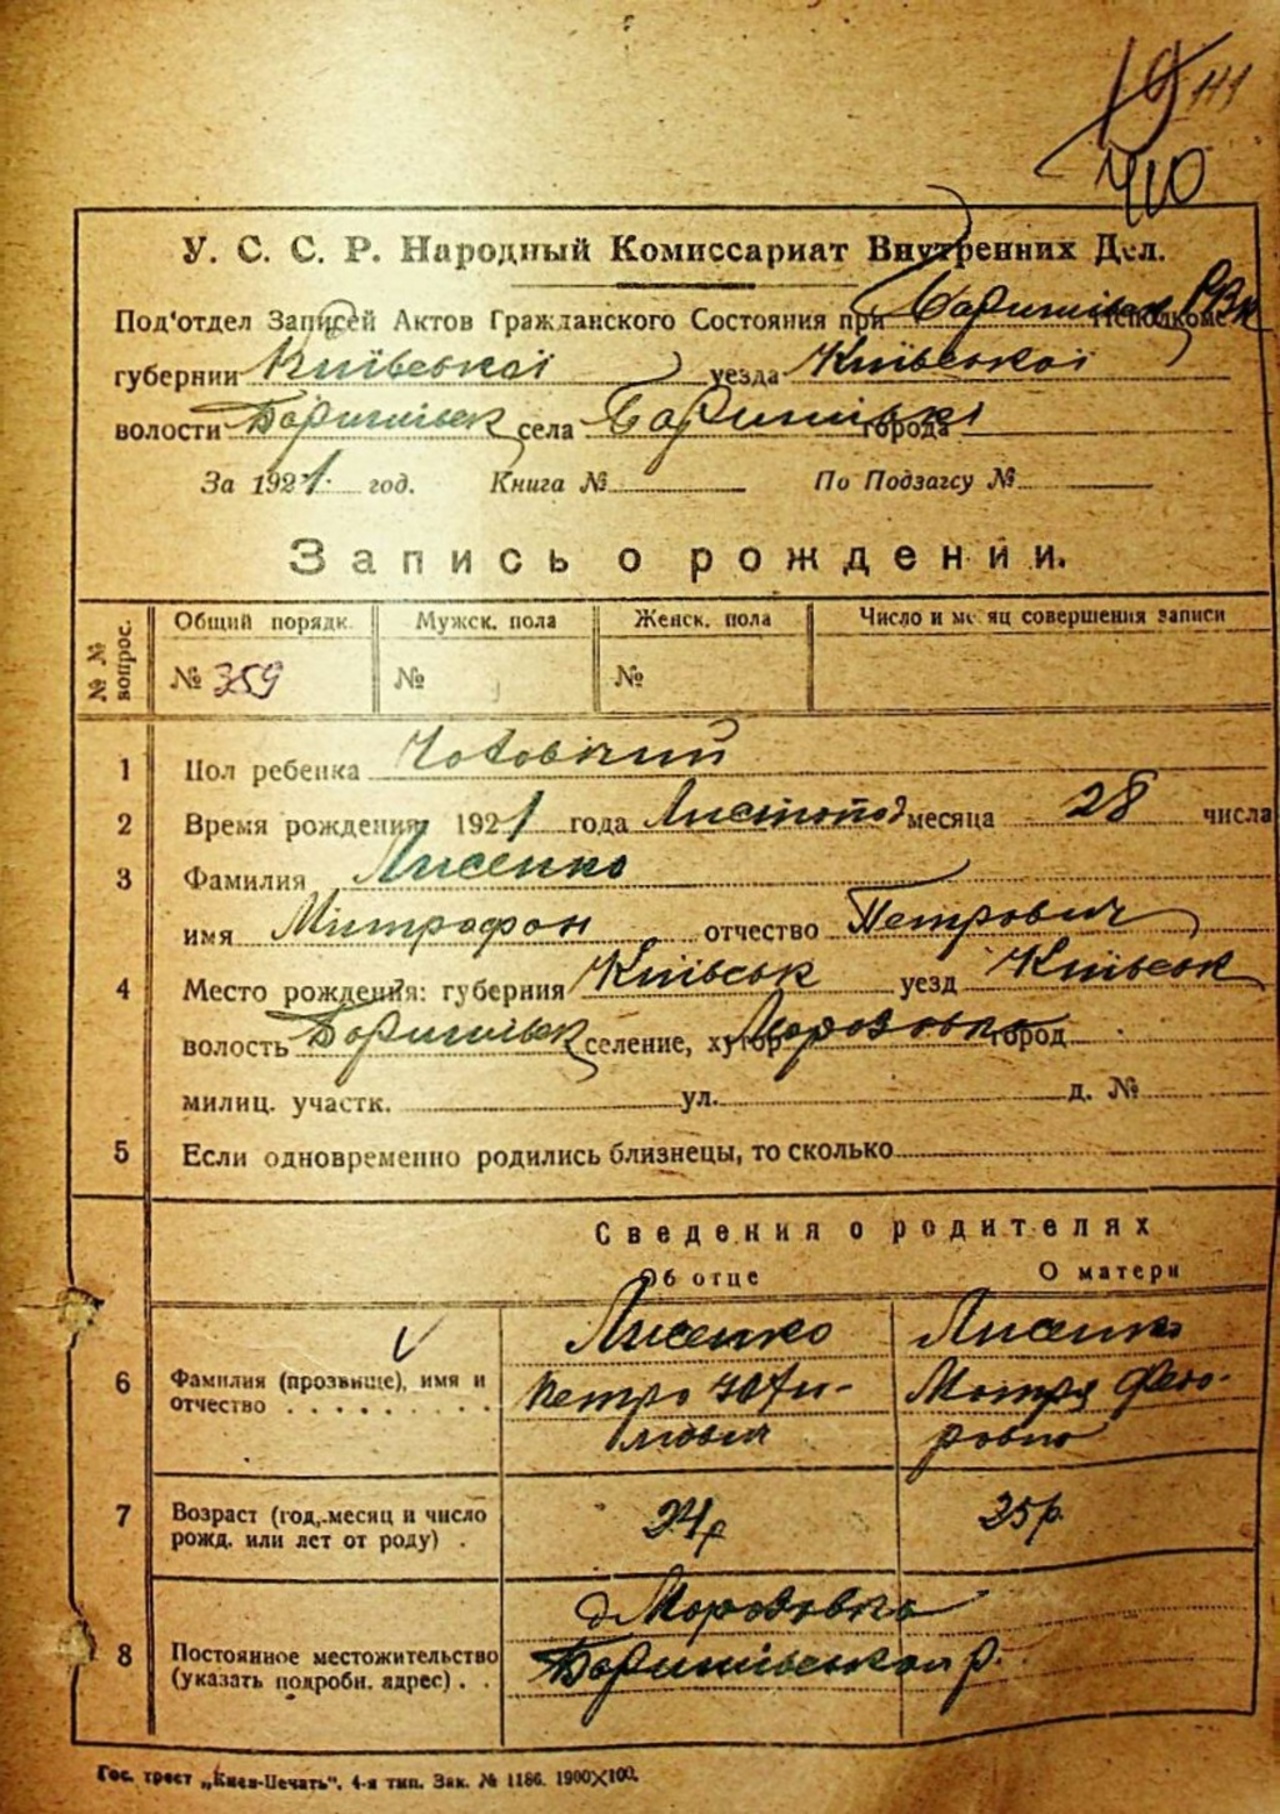 19 141
410
У. С. С. Р. Народный Комиссариат Внутренних Дел.
Под'отдел Записей Актов Гражданского Состояния при Баришівськ РВК Исполкоме
губернии Київської уезда Київської
волости Баришівськ села Баришівкі города
За 1921. год. Книга № По Подзагсу №
Запись о рождении.
№ № вопрос. Общий порядк. Мужск. пола Женск. пола Число и месяц совершения записи
№ 359 № №
1 Пол ребенка Чоловічий
2 Время рождения 1921 года Листопад месяца 28 числа
3 Фамилия Лисенко
имя Митрофан отчество Петрович
4 Место рождения: губерния Київськ уезд Київськ
волость Баришівськ селение, хутор Морозовка город
милиц. участк. ул. д. №
5 Если одновременно родились близнецы, то сколько
Сведения о родителях
Об отце О матери
Лисенко Лисенко
6 Фамилия (прозвище), имя и Петро Юхи- Мотря Федо-
отчество . . . . . . . . . мович ровна
7 Возраст (год, месяц и число 24р 25р.
рожд. или лет от роду) .
д Морозовка
8 Постоянное местожительство Баришівськой р.
(указать подробн. адрес) . .
Гос. трест „Киев-Печать“. 4-я тип. Зак. № 1186. 1900X100.